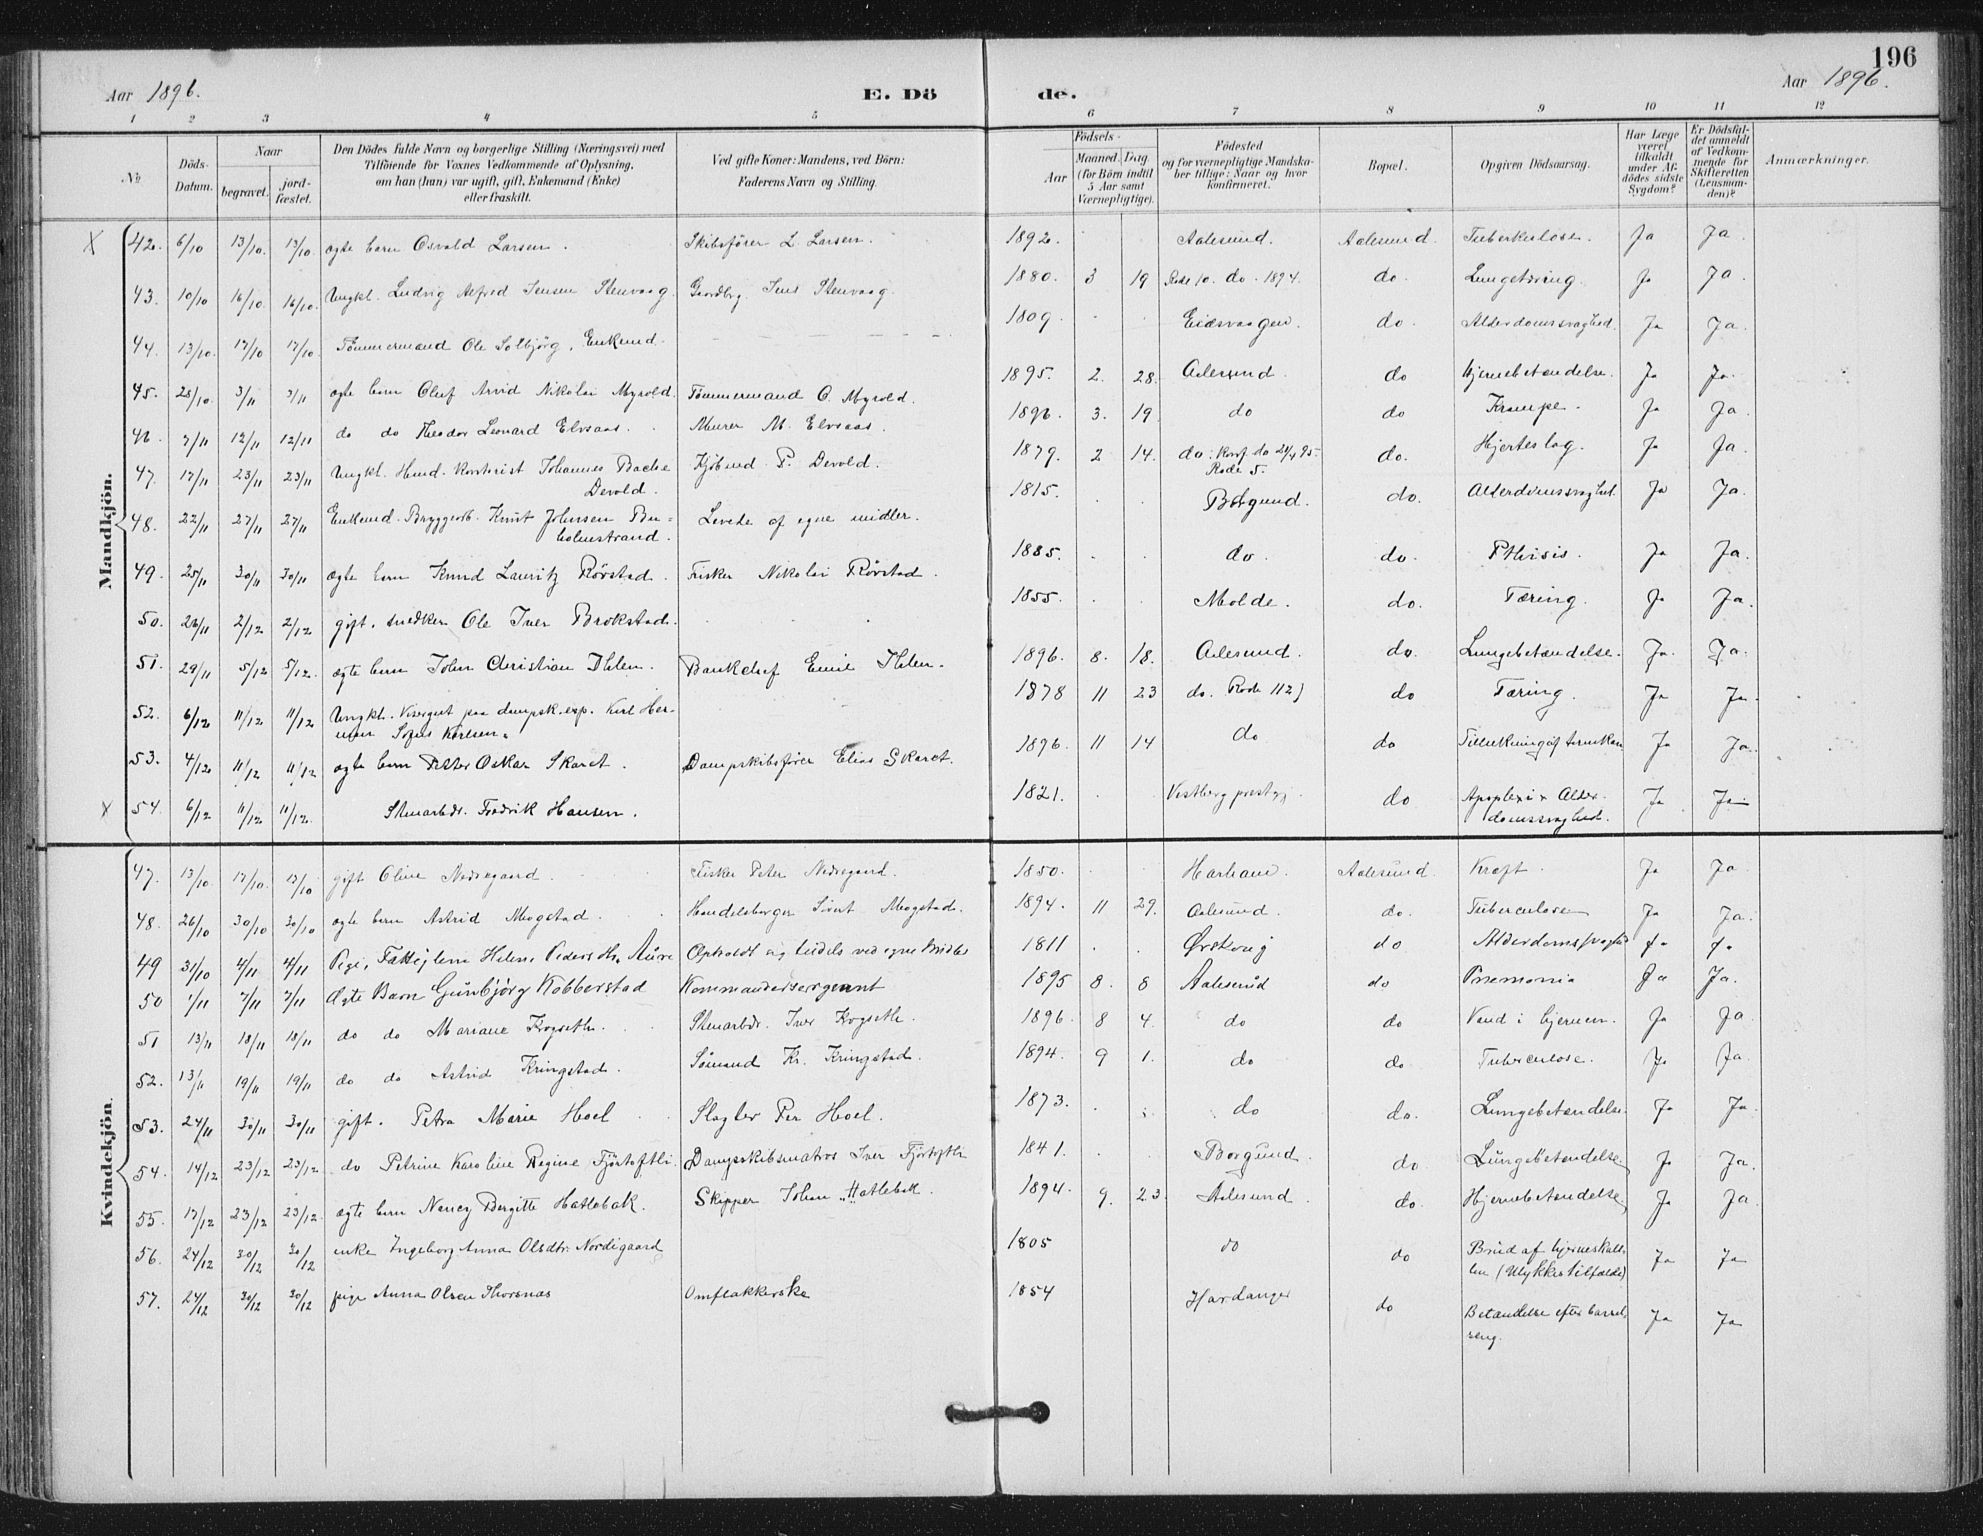 196
Aar 1896. E. Dö de. Aar 1896.
1 2 3 4 5 6 7 8 9 10 11 12
№ Döds-Datum. Naar begravet. jord-fæstet. Den Dödes fulde Navn og borgerlige Stilling (Næringsvei) med Tilföiende for Voxnes Vedkommende af Oplysning, om han (hun) var ugift, gift, Enkemand (Enke) eller fraskilt. Ved gifte Koner: Mandens, ved Börn: Faderens Navn og Stilling. Födsels- Aar Maaned. Dag. (for Börn indtil 5 Aar samt Værnepligtige). Födested og for værnepligtige Mandskaber tillige: Naar og hvor konfirmeret. Bopæl. Opgiven Dödsaarsag. Har Læge været tilkaldt under Afdödes sidste Sygdom? Er Dödsfaldet anmeldt af Vedkommende for Skifteretten (Lensmanden)? Anmærkninger.
Mandkjön.
X 42. 6/10 13/10. 13/10. ægte barn Osvald Larsen. Skibsfører L. Larsen. 1892. Aalesund. Aalesund. Tuberkulose. Ja Ja.
43. 10/10 16/10. 16/10. Ungkl. Ludvig Alfred Jensen Stenvaag. Gaardbrg. Jens Stenvaag. 1880. 3 19 Rode 10. do. 1894. do. Lungetæring. Ja Ja.
44. 13/10. 17/10 17/10. Tømmermand Ole Solbjörg, Enkemd. 1809. Eidsvaagen. do. Alderdomssvaghed. Ja Ja.
45. 28/10. 3/11 3/11 ægte barn Oluf Arvid Nikolai Myrvold. Tømmermand O. Myrvold. 1895. 2. 28. Aalesund. do Hjernebetændelse. Ja Ja.
46. 7/11 12/11 12/11 do do Theodor Leonard Elvsaas. Murer M. Elvsaas. 1896. 3. 19 do do Krampe. Ja Ja.
47. 17/11 23/11 23/11 Ungkl. Hand. Kontorist Johannes Bache Devold. Kjøbmd. P. Devold. 1879. 2 14. do. Konf. do 21/4 95. Rode 5. do. Hjerteslag. Ja Ja.
48. 22/11 27/11 27/11 Enkemd. Bryggearb. Knut Johnsen Buholmstrand. Levede af egne midler. 1815. Borgund. do. Alderdomssvaghed. Ja Ja.
49. 25/11 30/11 30/11 ægte barn Knud Lauritz Rörstad. Fisker Nikolai Rörstad. 1885. do. do. Pthisis. Ja Ja.
50. 26/11 2/12 2/12 gift. snedker Ole Iver Brokstad. 1855. Molde. do. Tæring. Ja Ja.
51. 29/11 5/12 5/12. ægte barn John Christian Ihlen. Bankchef Emil Ihlen. 1896. 8. 18. Aalesund. do. Lungebetændelse. Ja. Ja.
52. 6/12 11/12 11/12 Ungkl. Visergut paa dampsk.esp. Karl Herman Sofus Karlsen. 1878 11 23 do. Rode 112) do Tæring. Ja Ja.
53. 4/12 11/12 11/12 ægte barn Peter Oskar Skaret. Dampskibsfører Elias Skaret. 1896. 11 14 do do Tillukning af tarmkan. Ja Ja.
X 54. 6/12 11/12 11/12. Stuearbdr. Fredrik Hansen. 1821. Vestberg prestgj. do Apoplexi & Alderdomssvaghed. Ja Ja.
Kvindekjön.
47. 13/10. 17/10. 17/10 gift Oline Nedregaard. Fisker Peter Nedregaard. 1850. Harham. Aalesund. Kræft. Ja Ja.
48. 26/10 30/10 30/10 ægte barn Astrid Mogstad. Handelsborger Sivert Mogstad. 1894. 11 29. Aalesund. do. Tuberculose Ja Ja.
49 31/10 4/11 4/11 Pige, Fattiglem Helene Pedersdtr. Aure Opholdt sig tildels ved egne Midler 1811 Ørskoug do Alderdomssvaghed Ja Ja.
50 1/11 7/11 7/11 Ægte Barn Gunbjörg Kobberstad Kommandersergeant 1895 8. 8 Aalesund do Pnemonia Ja Ja.
51 13/11 18/11 18/11 do do Mariane Kogseth. Stuearbdr. Iver Kogseth. 1896. 8 4. do do Vand i hjernen. Ja Ja
52. 13/11 19/11 19/11 do do Astrid Kringstad. Sömand Kr. Kringstad. 1894. 9 1. do do. Tuberculose. Ja Ja.
53. 24/11 30/11 30/11 gift. Petra Marie Hoel Slagter Per Hoel. 1873. do do. Lungebetændelse. Ja Ja.
54. 14/12 23/12 23/12. do Petrine Karoline Regine Fjörtofth. Dampskibsmatros Iver Fjörtofth 1841. Borgund do. Lungebetændelse. Ja Ja.
55. 17/12 23/12 23/12. ægte barn Nancy Bergitte Hatlebak. Skipper Johan Hatlebak. 1894. 9. 23. Aalesund. do. Hjernebetændelse. Ja Ja
56. 24/12 30/12 30/12 enke Ingeborg Anna Olsdtr. Nordigaard 1805 do do Brud af hjerneskallen (Ulykkestilfælde) Ja Ja
57. 24/12 30/12 30/12 pige Anna Olsen Thorsnæs Omflakkerske 1854 Hardanger do Betændelse efter barselseng. Ja Ja